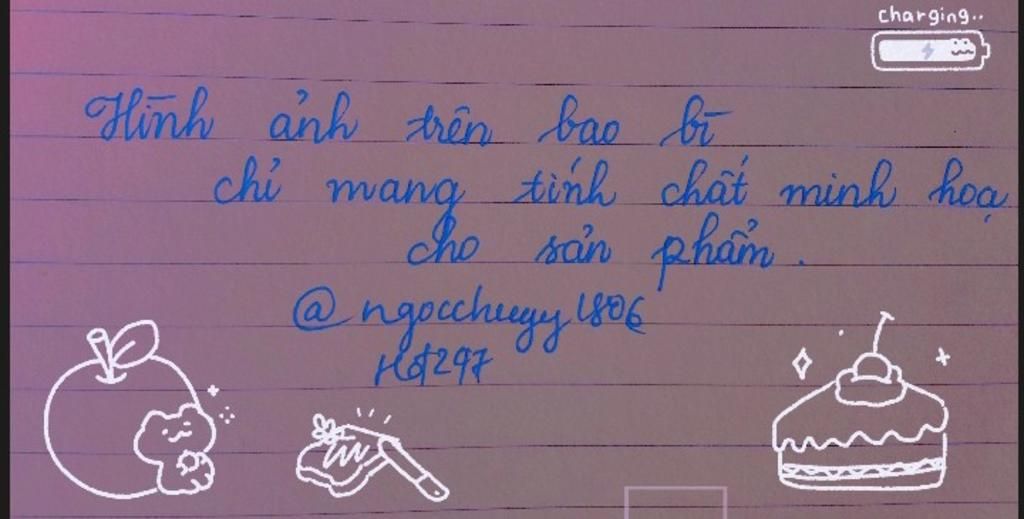 charging..
Hình ảnh trên bao bì
chỉ mang tính chất minh hoạ
cho sản phẩm.
@ngocchuyy1806